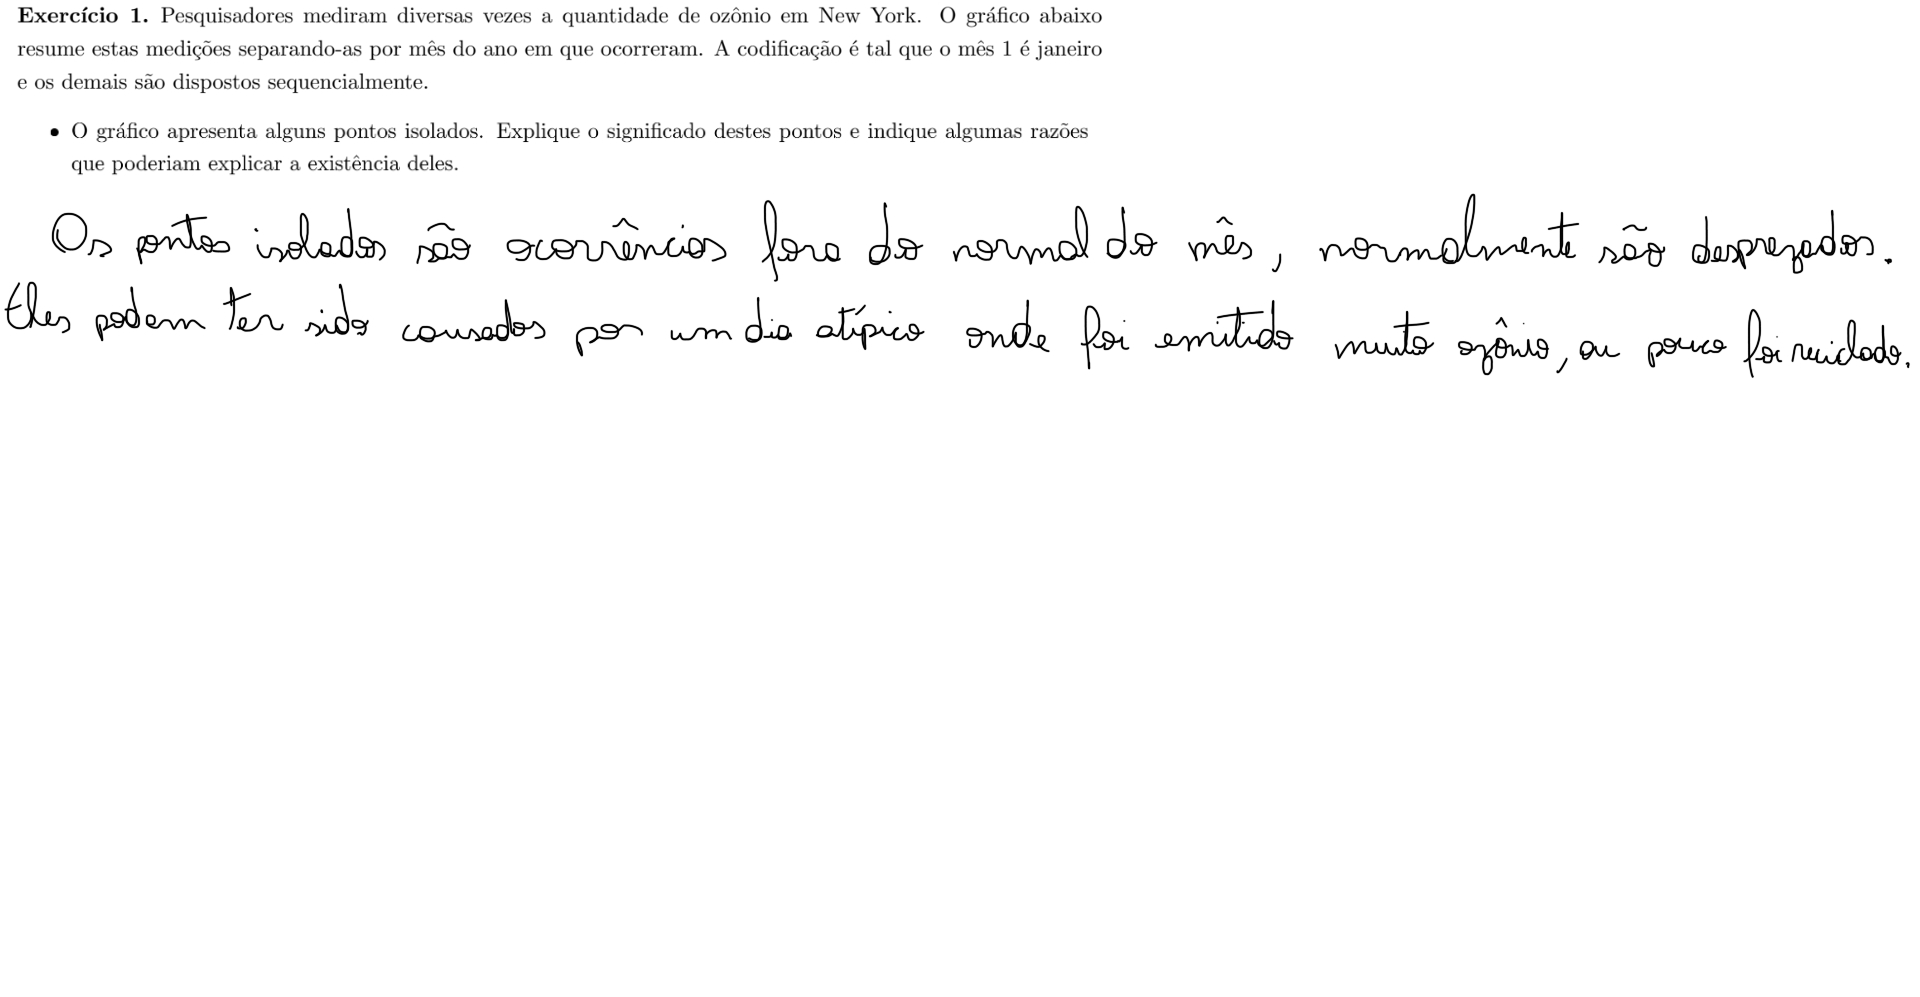 Exercício 1. Pesquisadores mediram diversas vezes a quantidade de ozônio em New York. O gráfico abaixo
resume estas medições separando-as por mês do ano em que ocorreram. A codificação é tal que o mês 1 é janeiro
e os demais são dispostos sequencialmente.
• O gráfico apresenta alguns pontos isolados. Explique o significado destes pontos e indique algumas razões
que poderiam explicar a existência deles.
Os pontos isolados são ocorrências fora do normal do mês, normalmente são desprezados.
Eles podem ter sido causados por um dia atípico onde foi emitido muito ozônio, ou pouco foi reciclado.